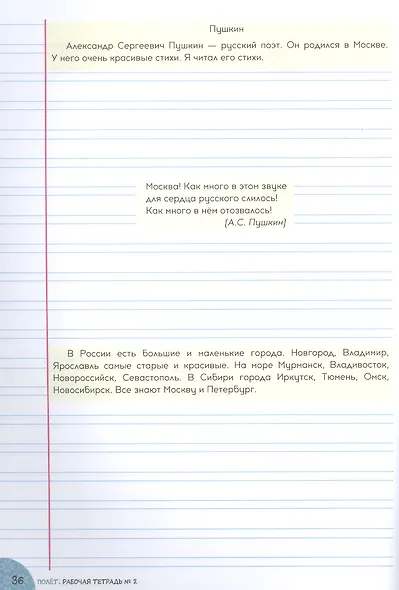 Пушкин
Александр Сергеевич Пушкин — русский поэт. Он родился в Москве.
У него очень красивые стихи. Я читал его стихи.
Москва! Как много в этом звуке
для сердца русского слилось!
Как много в нём отозвалось!
(А.С. Пушкин)
В России есть большие и маленькие города. Новгород, Владимир,
Ярославль самые старые и красивые. На море Мурманск, Владивосток,
Новороссийск, Севастополь. В Сибири города Иркутск, Тюмень, Омск,
Новосибирск. Все знают Москву и Петербург.
36 ПОЛЁТ. РАБОЧАЯ ТЕТРАДЬ № 2